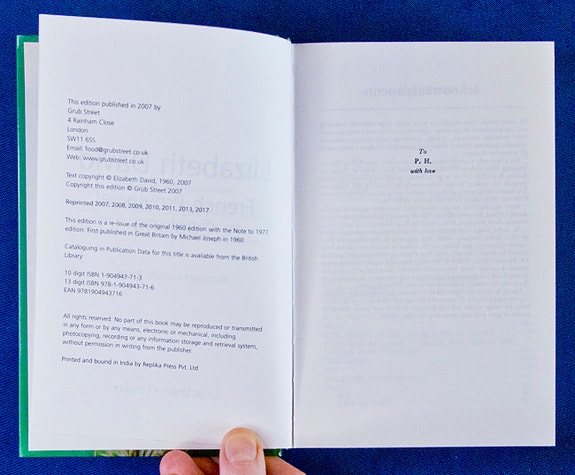 This edition published in 2007 by
Grub Street
4 Rainham Close
London
SW11 6SS
Email: food@grubstreet.co.uk
Web: www.grubstreet.co.uk
Text copyright © Elizabeth David, 1960, 2007
Copyright this edition © Grub Street 2007
Reprinted 2007, 2008, 2009, 2010, 2011, 2013, 2017
This edition is a re-issue of the original 1960 edition with the Note to 1977
edition. First published in Great Britain by Michael Joseph in 1960
Cataloguing in Publication Data for this title is available from the British
Library
10 digit ISBN 1-904943-71-3
13 digit ISBN 978-1-904943-71-6
EAN 9781904943716
All rights reserved. No part of this book may be reproduced or transmitted
in any form or by any means, electronic or mechanical, including
photocopying, recording or any information storage and retrieval system,
without permission in writing from the publisher.
Printed and bound in India by Replika Press Pvt. Ltd
To
P. H.
with love